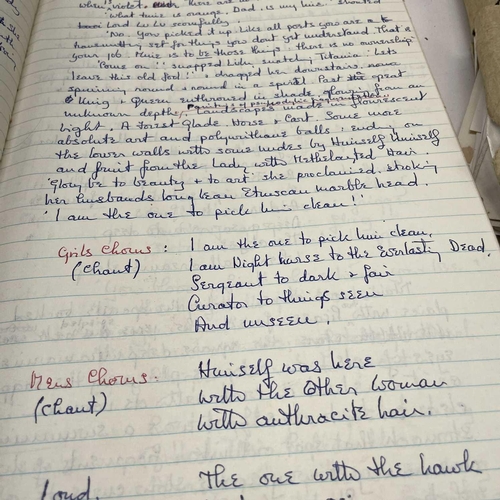 when violet
'What time is orange, Dad, is my line' shouted
Lord Lulu scornfully
'No. You picked it up. Like all poets you are a
set for things you don't yet understand. That's
your job. Mine is to be those things. There is no ownership
'Come on' she snapped like snotty Titania. 'Let's
leave this old fool!' + dragged her downstairs, now
spinning round + round in a spiral. Past the great
King + Queen enthroned in shade, glowing from an
unknown depths, Landscapes made in flourescent
light. A Forest Glade. Horse + Cart. Some more
absolute art and polyurithane balls: ending on
the lower walls with some nudes by Himself Himself
and fruit from the Lady with Hair.
'Glory be to beauty + to art' she proclaimed, stroking
her husbands long lean Etruscan marble head.
'I am the one to pick him clean!'
Girls Chorus: I am the one to pick him clean,
(Chant) I am Night nurse to the Everlasting Dead.
Sergeant to dark + fair
Curator to things seen
And unseen.
Mens Chorus: Himself was here
(Chant) with the Other Woman
with anthracite hair.
Loud. The one with the hawk